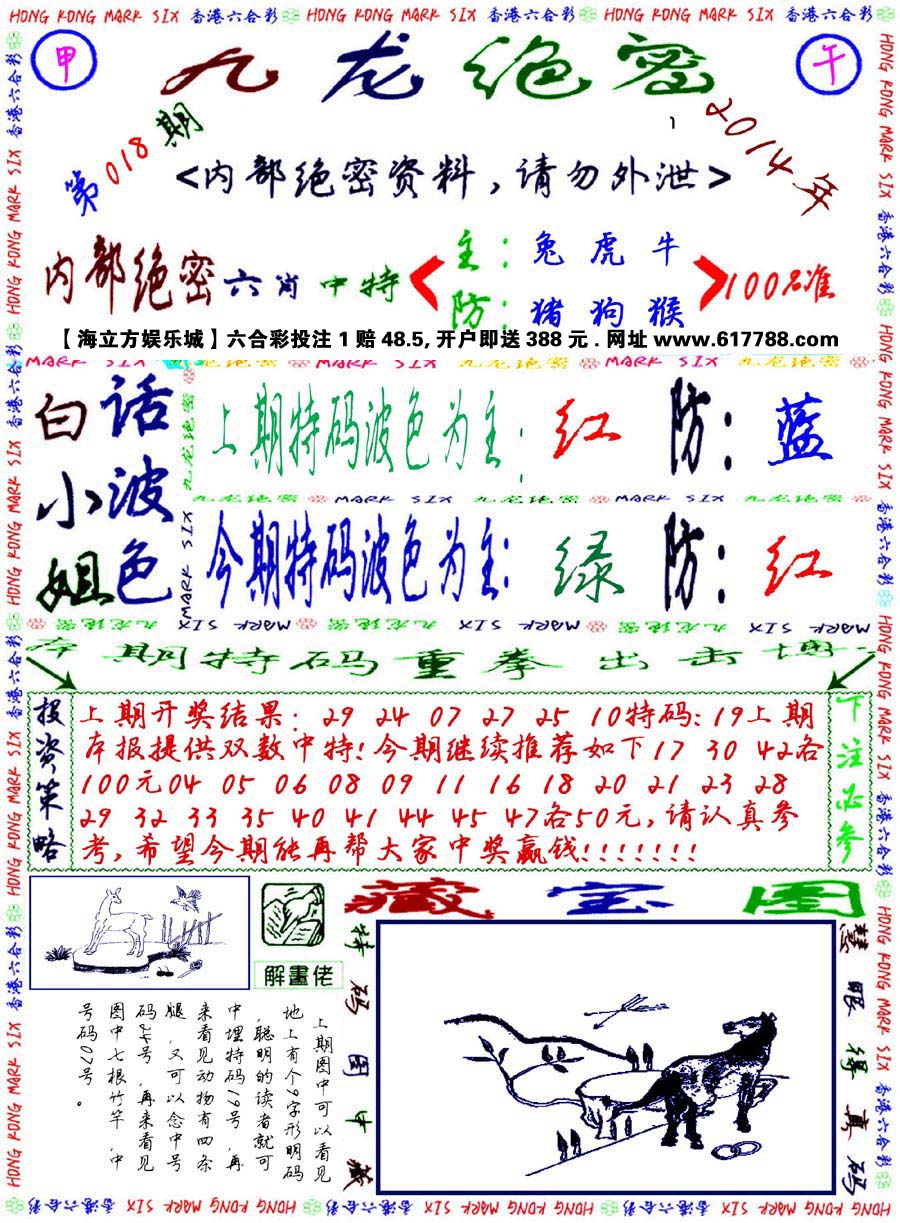 HONG KONG MARK SIX 香港六合彩 HONG KONG MARK SIX 香港六合彩 HONG KONG MARK SIX 香港六合彩
甲
九龙绝密
午
第018期
2014年
<内部绝密资料,请勿外泄>
内部绝密六肖中特
主:兔虎牛
防:猪狗猴
100%准
【海立方娱乐城】六合彩投注1赔48.5,开户即送388元.网址www.617788.com
白话
小波
姐色
上期特码波色为主:红 防:蓝
九龙绝密 MARK SIX 九龙绝密 MARK SIX 九龙绝密
今期特码波色为主:绿 防:红
本期特码重拳出击博
投资策略
上期开奖结果:29 24 07 27 25 10特码:19上期
本报提供双数中特!今期继续推荐如下17 30 42各
100元04 05 06 08 09 11 16 18 20 21 23 28
29 32 33 35 40 41 44 45 47各50元,请认真参
考,希望今期能再帮大家中奖赢钱!!!!!!!
下注必参
藏宝图
解畫佬
上期图中可以看见
地上有个9字形明码
,聪明的读者就可
中埋特码19号,再
来看见动物有四条
腿,又可以念中号
码24号,再来看见
图中七根竹竿,中
号码07号。
特码图中藏
慧眼得真码